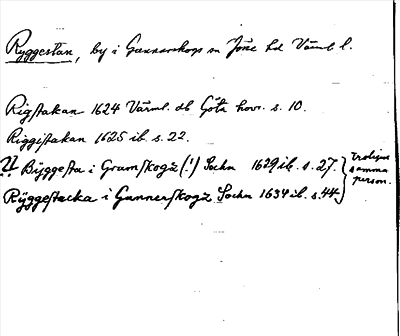 Ryggestan, by i Gunnarskogs sn Jösse hd Värml l.
Rigstakan 1624 Värml. db Göta hovr. s. 10.
Riggistakan 1625 ib. s. 22.
?! Byggesta i Gramskogz (!) Sochn 1629 ib. s. 27. } Troligen samma person.
Ryggestacka i Gunnerskogz Sochn 1634 ib. s. 44